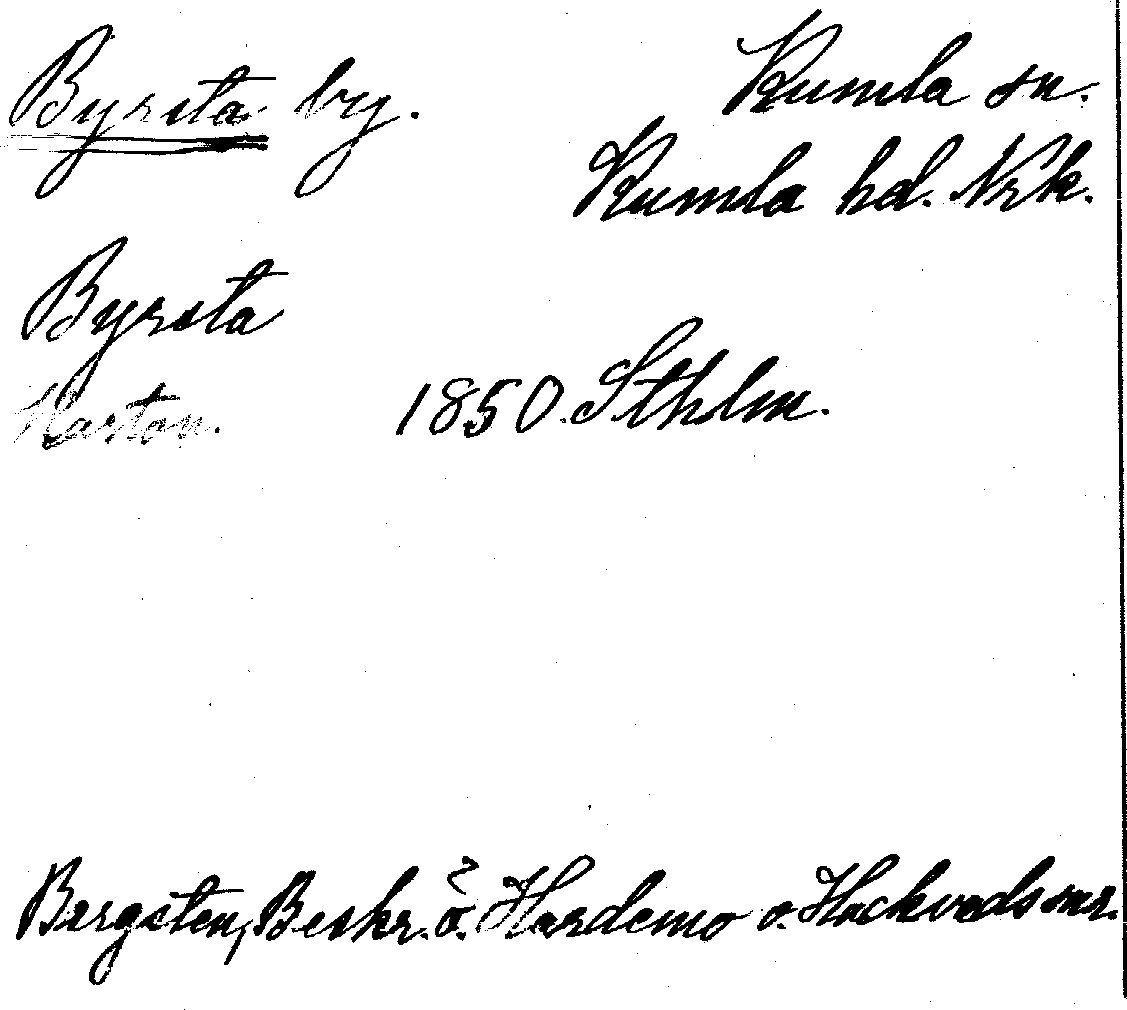 Byrsta by. Kumla sn.
Kumla hd. Nrk.
Byrsta
Kartan. 1850. Sthlm.
Bergsten, Beskr. ö. Hardemo o. Hackvads snr.